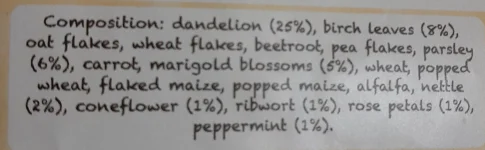 Composition: dandelion (25%), birch leaves (8%),
oat flakes, wheat flakes, beetroot, pea flakes, parsley
(6%), carrot, marigold blossoms (5%), wheat, popped
wheat, flaked maize, popped maize, alfalfa, nettle
(2%), coneflower (1%), ribwort (1%), rose petals (1%),
peppermint (1%).